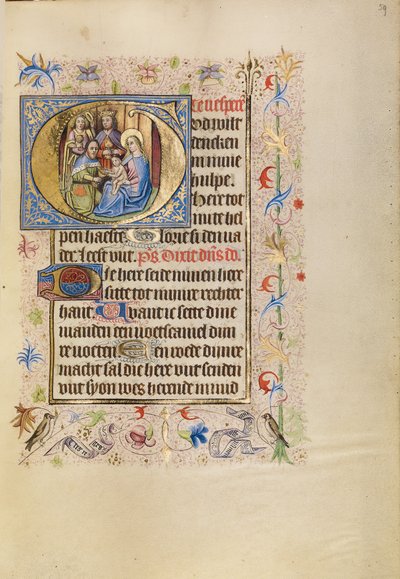 59
te vespere
God wilt
dencken
in minre
hulpe.
Here tot
mi te hel
pen haeste. Glorie si den va
der. Leest vut. Ps Dixit dns do.
Die here seide minen here
sitte tot mijnre rechter
hant Want ic sette dine
vianden een voetscamel dijn
re voeten Een roede dijnre
macht sal die here vut senden
vut syon wes herende in mid